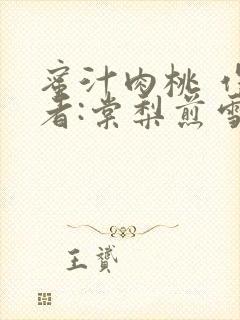 蜜汁肉桃
者:棠梨煎雪
王贇